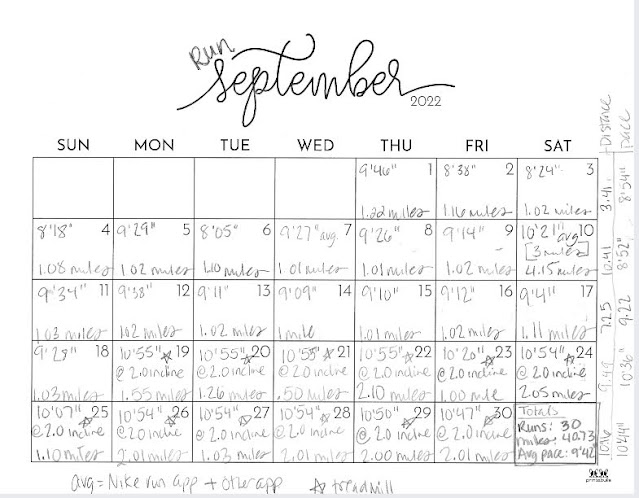 Run
september
2022
SUN MON TUE WED THU FRI SAT
9'46" 1 8'38" 2 8'24" 3
1.22 miles 1.16 miles 1.02 miles
8'18" 4 9'29" 5 8'05" 6 9'27" avg. 7 9'26" 8 9'14" 9 10'21" avg 10
[3 miles]
1.08 miles 1.02 miles 1.10 miles 1.01 miles 1.01 miles 1.02 miles 4.15 miles
9'34" 11 9'38" 12 9'11" 13 9'09" 14 9'10" 15 9'12" 16 9'4 17
1.03 miles 1.02 miles 1.02 miles 1 mile 1.01 miles 1.02 miles 1.11 miles
9'29" 18 10'55" ☆ 19 10'55" ☆ 20 10'55" ☆ 21 10'55" ☆ 22 10'20" ☆ 23 10'54" ☆ 24
@ 2.0 incline @ 2.0 incline @ 2.0 incline @ 2.0 incline @ 2.0 incline @ 2.0 incline
1.03 miles 1.55 miles 1.26 miles .50 miles 2.10 miles 1.00 mile 2.05 miles
10'07" ☆ 25 10'54" ☆ 26 10'54" ☆ 27 10'54" ☆ 28 10'50" ☆ 29 10'47" ☆ 30 Totals
@ 2.0 incline @ 2.0 incline @ 2.0 incline @ 2.0 incline @ 2.0 incline @ 2.0 incline Runs: 30
miles: 40.73
1.10 miles 2.01 miles 1.03 miles 2.01 miles 2.00 miles 2.01 miles Avg pace: 9'42"
avg = Nike run app + other app ☆ treadmill
printabulls
+Distance 3.41 10.41 7.25 9.49 10.16
pace 8'54" 8'52" 9'22 10'36" 10'44"